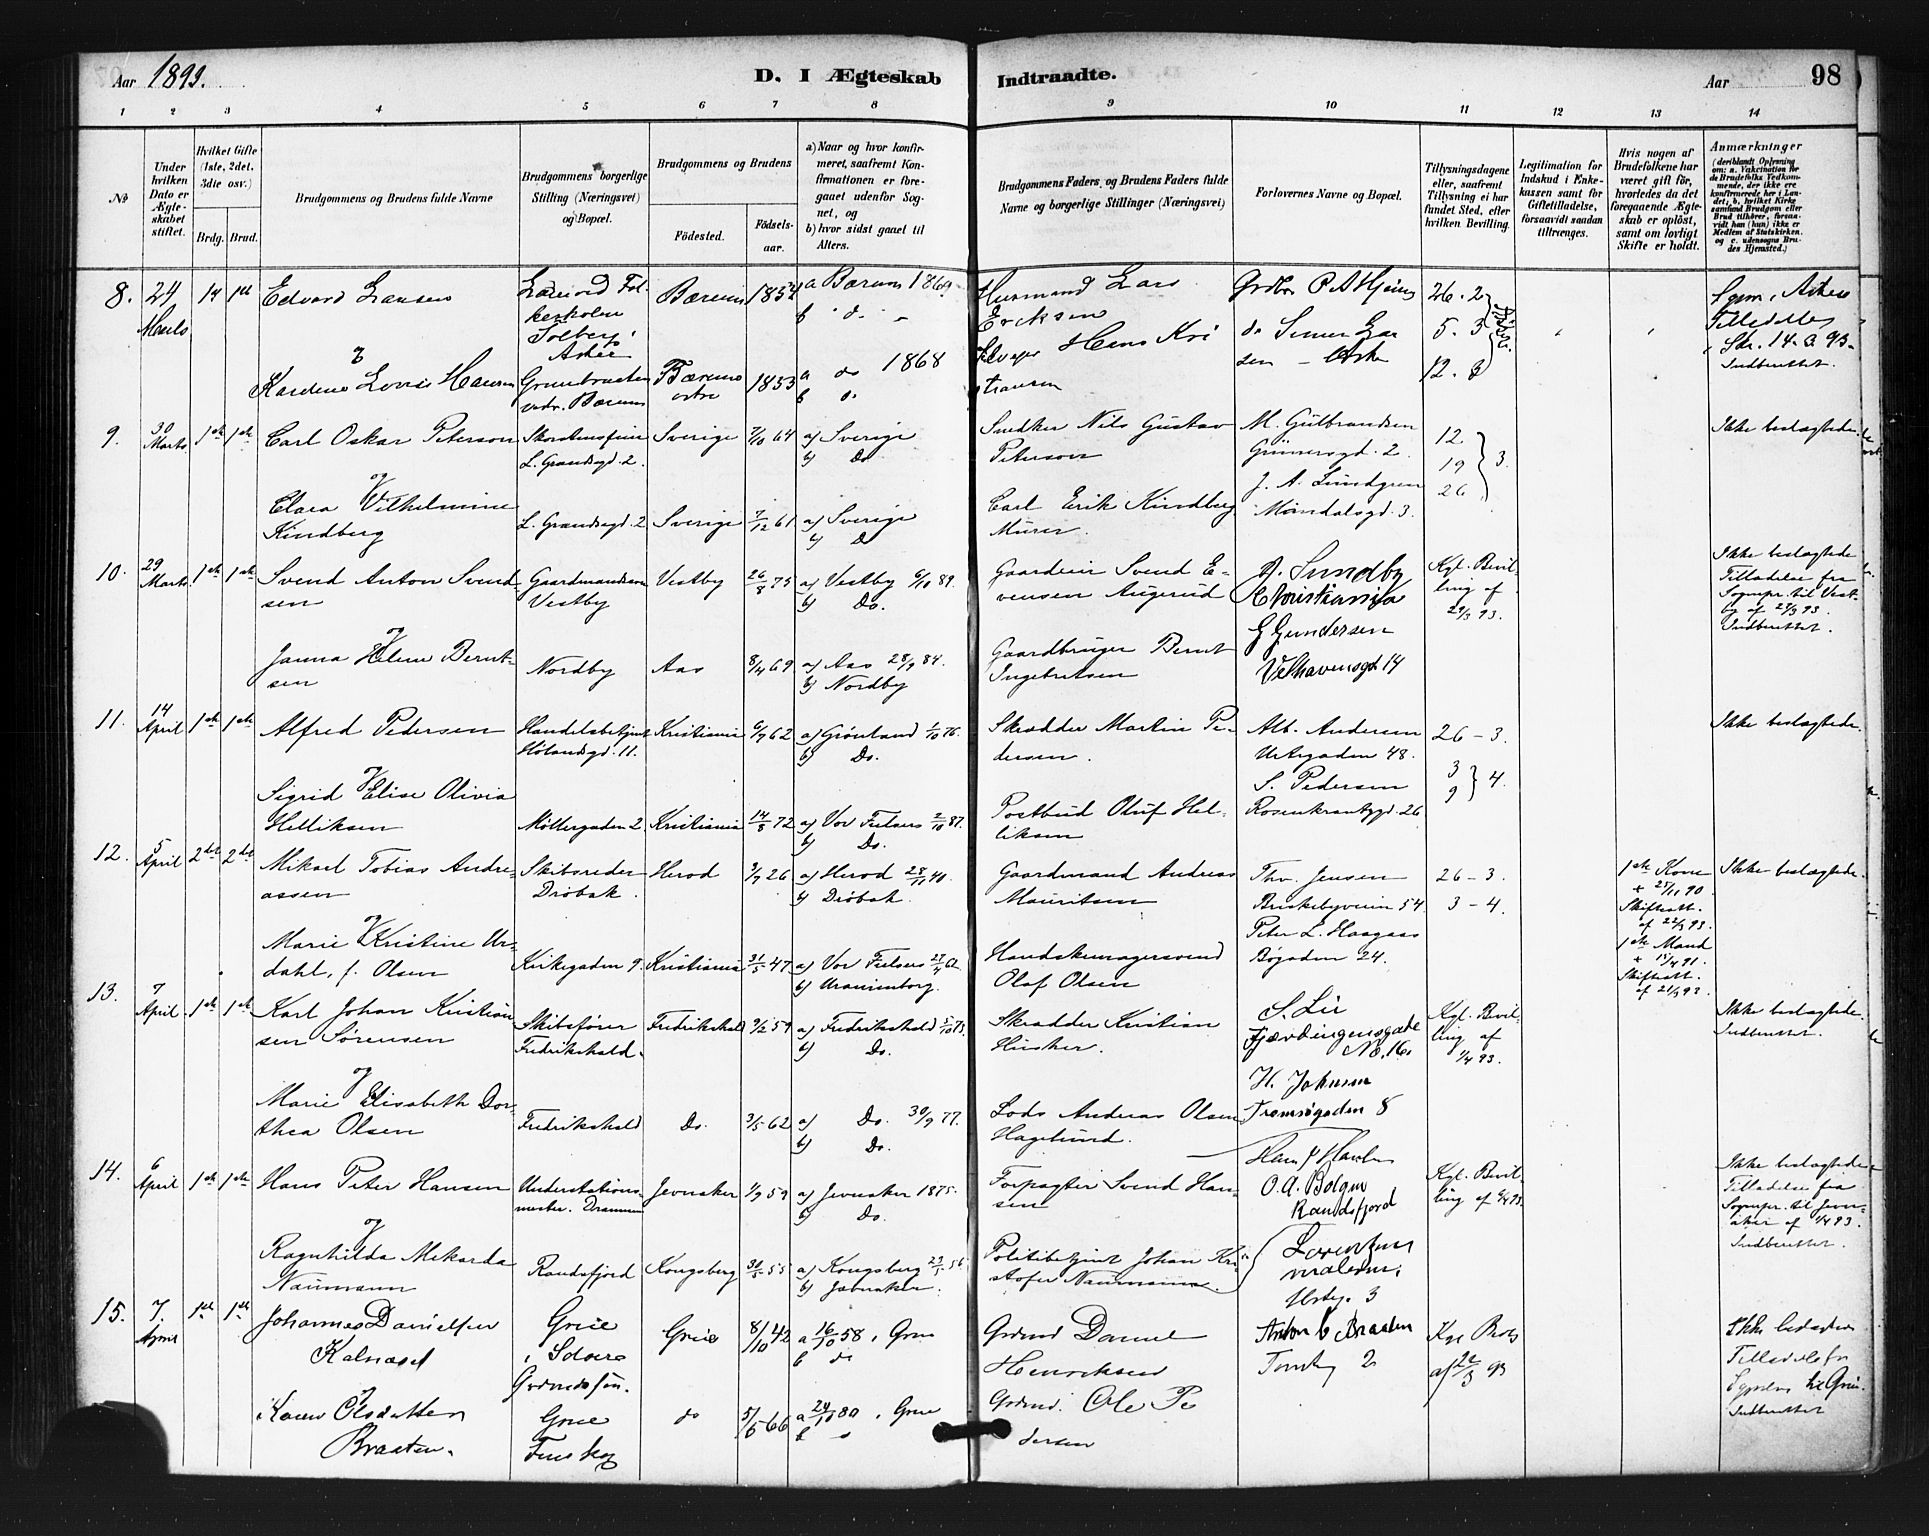 Aar 1893.
D. I Ægteskab Indtraadte.
Aar 98
1 2 3 4 5 6 7 8 9 10 11 12 13 14
No
Under hvilken Dato er Ægteskabet stiftet.
Hvilket Gifte (1ste, 2det, 3die osv.)
Brdg. Brud.
Brudgommens og Brudens fulde Navne
Brudgommens borgerlige Stilling (Næringsvei) og Bopæl.
Brudgommens og Brudens
Fødested.
Fødselsaar.
a) Naar og hvor konfirmeret, saafremt Konfirmationen er foregaaet udenfor Sognet, og
b) hvor sidst gaaet til Alters.
Brudgommens Faders og Brudens Faders fulde Navne og borgerlige Stillinger (Næringsvei)
Forlovernes Navne og Bopæl.
Tillysningsdagene eller, saafremt Tillysning ei har fundet Sted, efter hvilken Bevilling.
Legitimation for Indskud i Enkekassen samt for Giftetilladelse, forsaavidt saadan tiltrænges.
Hvis nogen af Brudefolkene har været gift før, hvorledes da det foregaaende Ægteskab er opløst, samt om lovligt Skifte er holdt.
Anmærkninger
8. 24 Marts
Edvard Larsen
Bærum 1854
a Bærum 1869
b do
Husmand Lars Ericksen
26. 2
5. 3
12. 3
og
Karoline Lovise Hansen
Bærum 1853
a do 1868
b do
Hans Kristiansen
Indberettet.
9. 30 Marts 1ste 1ste
Carl Oskar Peterson
Skorstensfeier
L. Grændsegd. 2.
Sverige 7/10 64
a) Sverige
b) Do
Snedker Nils Gustav Peterson
M. Gulbrandsen
Grünersgd. 2.
12
19
26 } 3.
Ikke beslægtede.
og
Clara Vilhelmine Kindberg
L. Grændsegd. 2
Sverige 7/12 61
a) Sverige
b) Do
Carl Erik Kindberg
Murer.
J. A. Lundgren
Mandalsgd. 3.
10. 29 Marts 1ste 1ste
Svend Anton Svendsen
Gaardmandssøn
Vestby
Vestby 26/8 75
a) Vestby 6/10 89.
b) Do.
Gaardeier Svend Evensen Augerud
A. Sundby
Christiania
Kgl. Bevilling af 29/3 93.
Ikke beslægtede
Tilladelse fra Sognepr. til Vestby af 27/3 93.
Indberettet.
og
Janna Helene Berntsen
Nordby
Aas 8/4 69
a) Aas 28/9 84.
b) Nordby
Gaardbruger Bernt Ingebretsen
G Gundersen
Velhavensgd 14
11. 14 April 1ste 1ste
Alfred Pedersen
Handelsbetjent
Hølandsgd. 11.
Kristiania 6/9 62
a) Grønland 1/10 76.
b) Do.
Skrædder Martin Pedersen.
Alb. Andersen
Urtegaden 48.
26 - 3.
3
9 } 4.
Ikke beslægtede.
og
Sigrid Elise Olivia Helliksen
Møllergaden 2
Kristiania 14/8 72
a) Vor Frelsers 2/10 87.
b) Do.
Postbud Oluf Helliksen
S. Pedersen
Rosenkrantzgd. 26
12. 5 April 2det 2det
Mikael Tobias Andreassen
Skibsreder
Drøbak.
Herod 3/9 26
a) Herod 28/11 40.
b) Drøbak.
Gaardmand Andreas Mauritsen
Thv. Jensen
Briskebyveien 54.
26 - 3.
3 - 4.
1ste Kone
+ 25/11 90.
Skifteatt. af 22/3 93.
Ikke beslægtede.
og
Marie Kristine Urdahl, f. Olsen
Kirkegaden 9.
Kristiania 31/5 47
a) Vor Frelsers 27/4 62
b) Uranienborg.
Handskemagersvend Olaf Olsen
Peter L. Haagaas
Bøgaden 24.
1ste Mand
+ 15/4 91.
Skifteatt. af 21/3 93.
13. 7 April 1ste 1ste
Karl Johan Kristiansen Sørensen
Skibsfører
Fredrikshald.
Fredrikshald 9/2 59
a) Fredrikshald 5/10 73.
b) Do.
Skrædder Kristian Hüsker.
S. Lie
Fjerdingensgade No. 16.
Kgl. Bevilling af 1/4 93.
Ikke beslægtede.
Indberettet.
og
Marie Elisabeth Dorthea Olsen
Fredrikshald
Do. 3/5 62
a) Do. 30/9 77.
b) Do.
Lods Andreas Olsen Hagelund.
H. Johnsen
Tromsøgaden 8
14. 6 April 1ste 1ste
Hans Peter Hansen
Understationsmester. Drammen
Jevnaker 1/9 59
a) Jevnaker 1875.
b) Do.
Forpagter Svend Hansen
O. A. Bolgen
Randsfjord
Kgl. Bevilling af 6/4 93.
Ikke beslægtede
Tilladelse fra Sognepr. til Jevnaker af 1/4 93.
Indberettet.
og
Ragnhilda Mekarda Naumann
Randsfjord
Kongsberg 30/5 55
a) Kongsberg
b) Jævnaker.
Politibetjent Johan Kristofer Naumann.
15. 7. April 1ste 1ste
Johannes Danielsen Kalnæset
Grue
Solvær
Grdmdssøn.
Grue 8/10 42
a 16/10 58, Grue
b do
Grdmd Daniel Henriksen
Anton C Braaten
Kgl Bev af 22/3 93
Ikke beslægtede
Indberettet
og
Karen Olsdatter Braaten.
Grue Finskog
do 5/6 66
a 24/10 80, Grue
Grdmd. Ole Pedersen